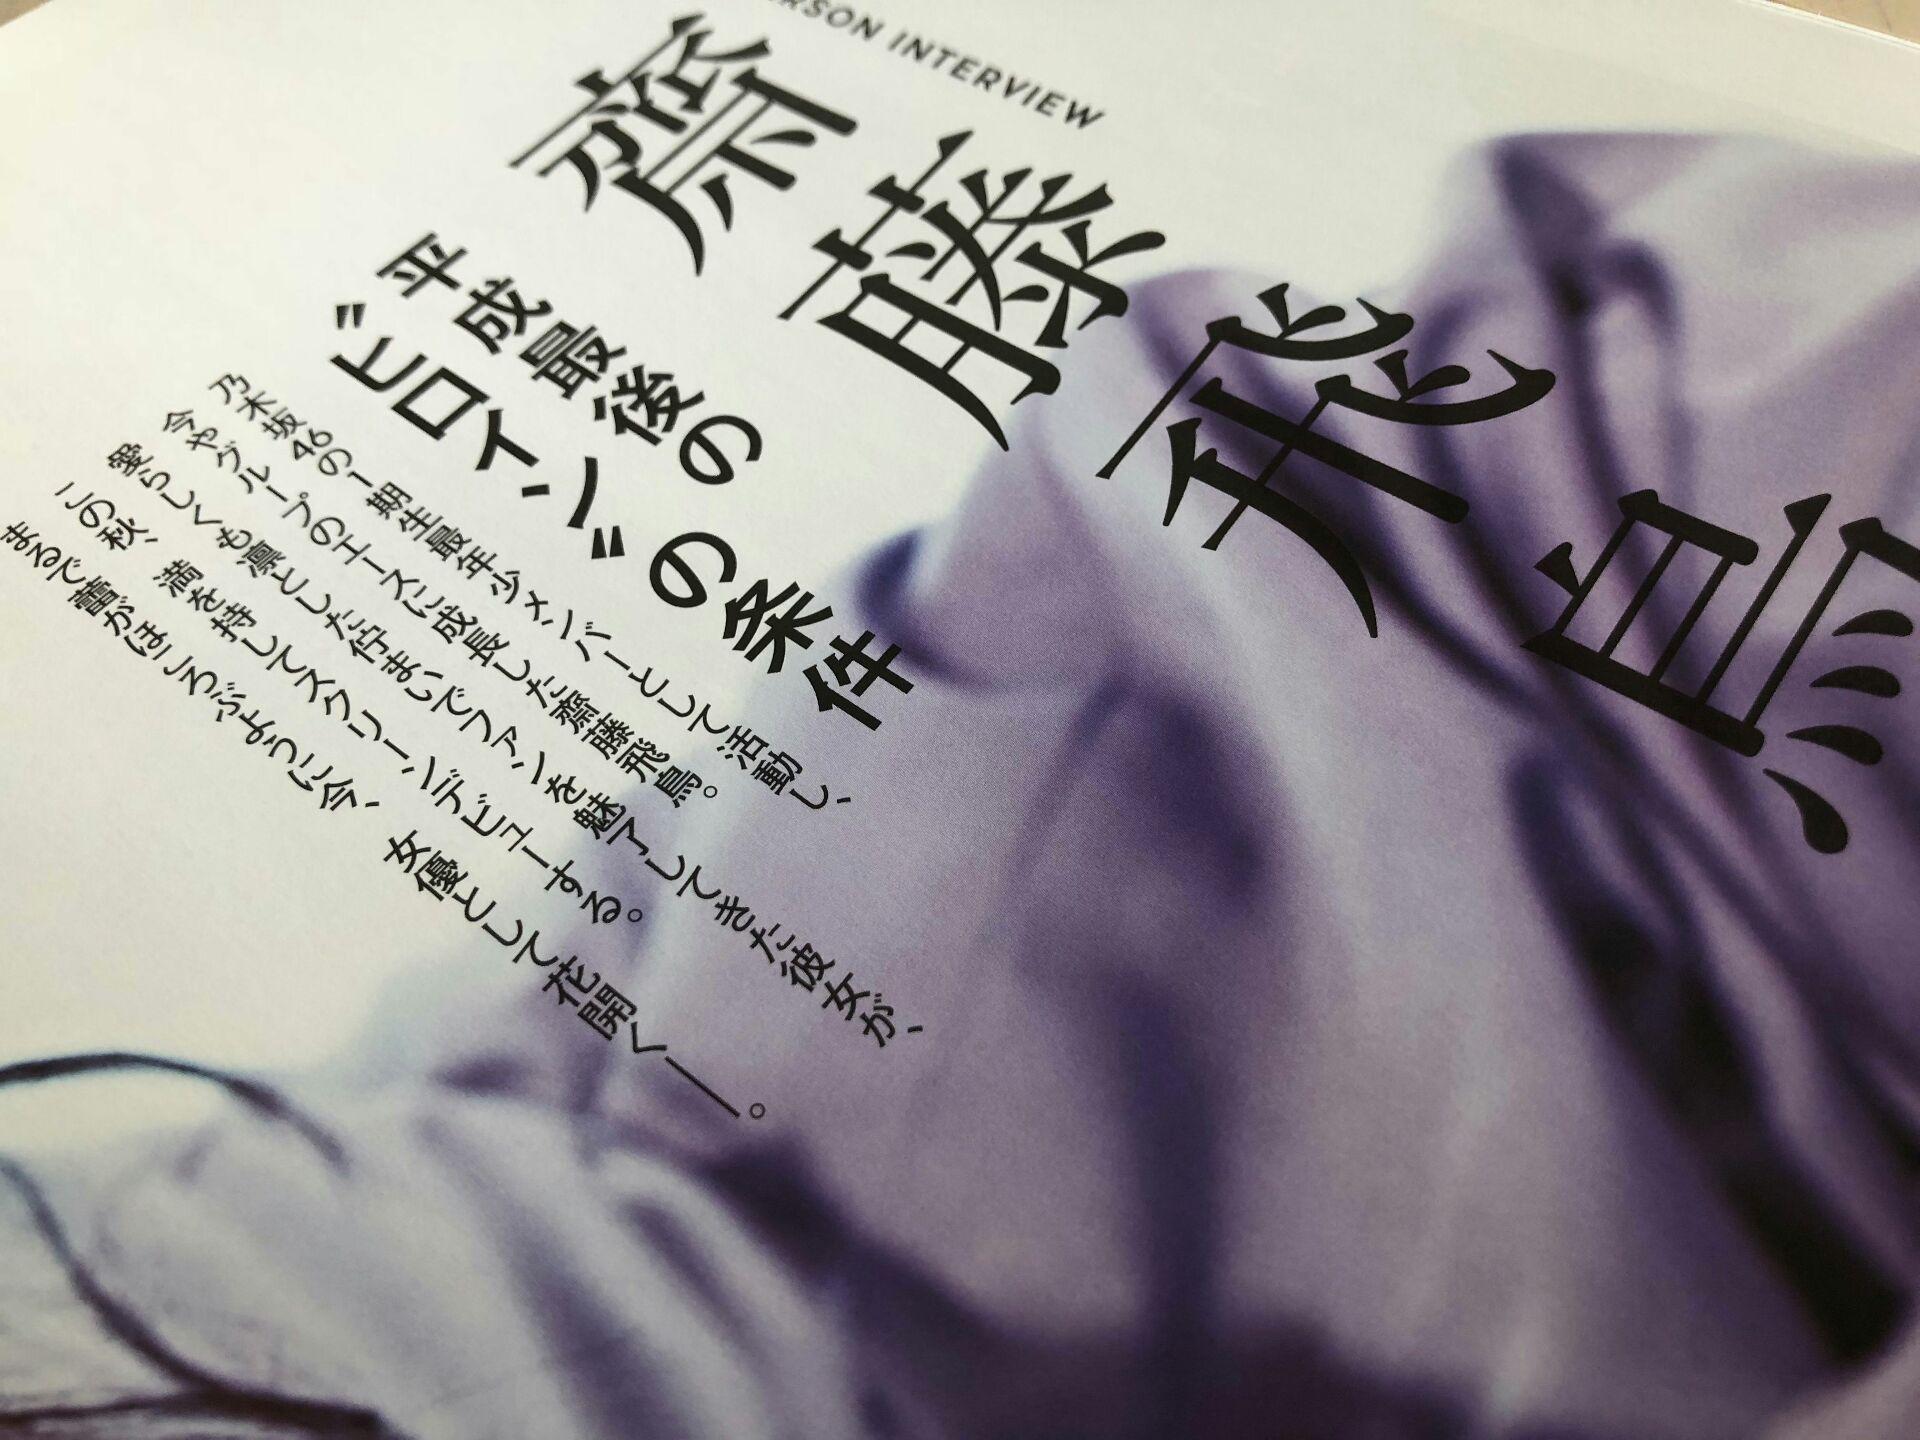 RSON INTERVIEW
齋藤飛鳥
平成最後の
〝ヒロイン〟の条件
乃木坂46の一期生最年少メンバーとして活動し、
今やグループのエースに成長した齋藤飛鳥。
愛らしくも凛とした佇まいでファンを魅了してきた彼女が、
この秋、満を持してスクリーンデビューする。
まるで蕾がほころぶように今、女優として花開く――。